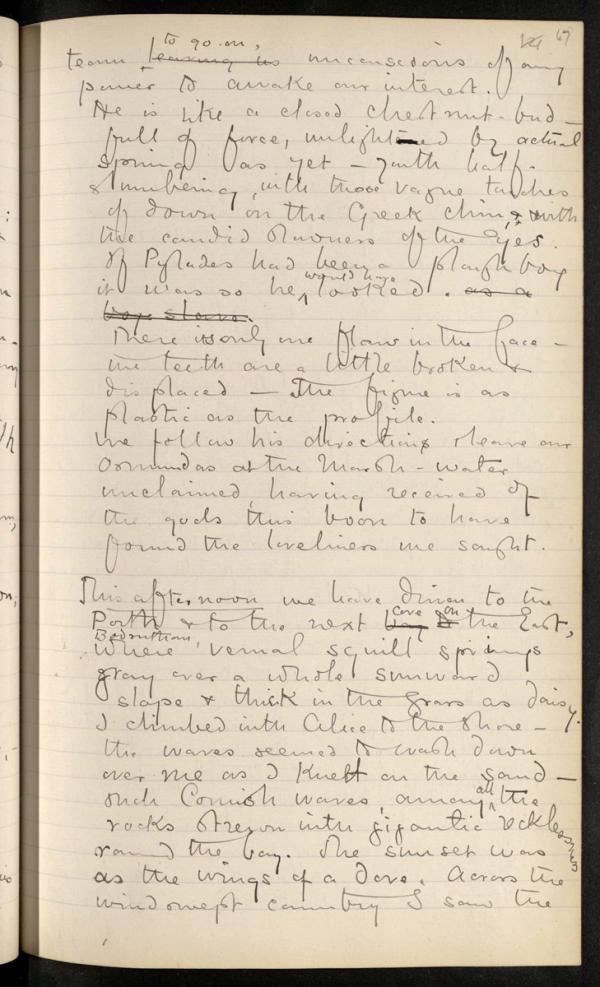 67
to go on,
team leaving us unconscious of any
power to awake our interest.
He is like a closed chestnut-bud –
full of force, unlightened by actual
spring as yet – youth half-
slumbering, with those vague touches
of down on the Greek chin, & with
the candid slowness of the Eyes.
If Pylades had been a plough boy
would have
it was so he looked. as a
boy slave.
There is only one flaw in the face –
the teeth are a little broken &
displaced – The figure is as
plastic as the profile.
We follow his directions & leave our
Osmundas at the Marsh-water
unclaimed, having received of
the gods this boon to have
found the loveliness we sought.
This afternoon we have driven to the
cove on
Porth & to the next bay to the East,
Bedruthan,
where vernal squill springs
gray over a whole sunward
slope & thick in the grass as daisy.
I climbed with Alice to the shore –
the waves seemed to wash down
over me as I knelt on the sand –
such Cornish waves, among all the
rocks strewn with gigantic recklessness
round the bay. The sunset was
as the wings of a dove. Across the
windswept country I saw the